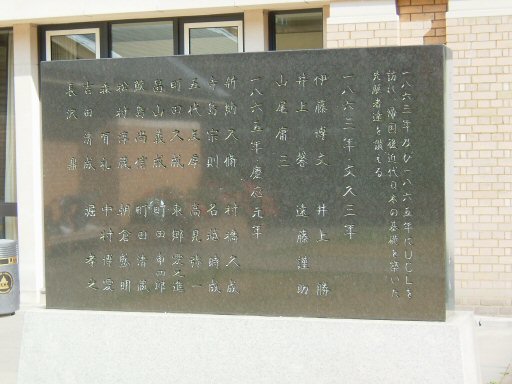 一八六三年及び一八六五年にUCLを
訪れ、帰国後近代日本の基礎を築いた
先駆者達を讃える
一八六三年・文久三年
伊藤博文 井上勝
井上馨 遠藤謹助
山尾庸三
一八六五年・慶應元年
新納久脩 村橋久成
寺島宗則 名越時成
五代友厚 高見弥一
町田久成 東郷愛之進
畠山義成 町田申四郎
鮫島尚信 町田清蔵
松村淳蔵 朝倉盛明
森有礼 中村博愛
吉田清成 堀孝之
長沢鼎